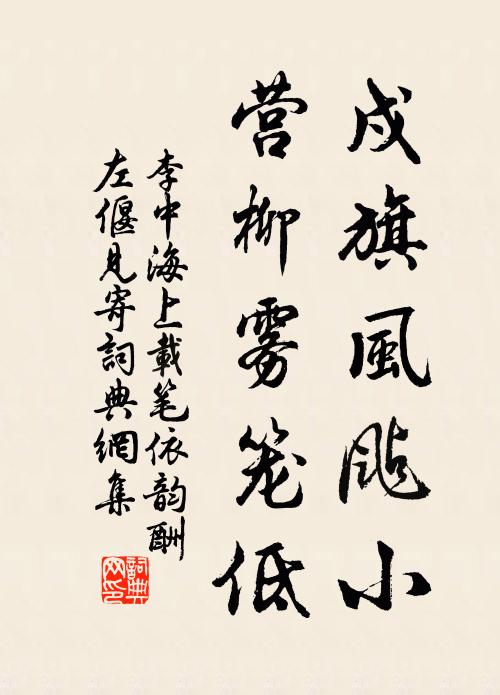 戍旗風颭小
营柳雾笼低
李中海上載笔依韵酬
左偃見寄詞典網集
詞典
网印